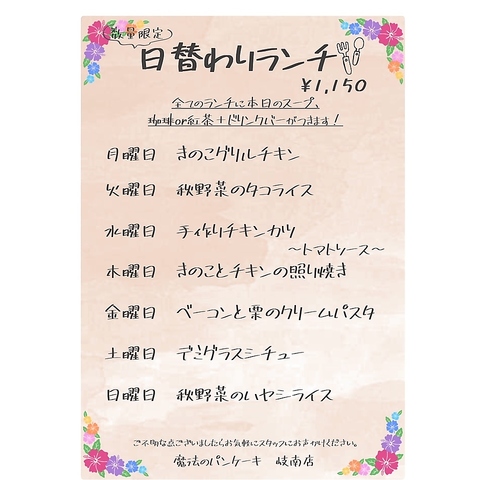 数量限定
日替わりランチ
¥1,150
全てのランチに本日のスープ、
珈琲or紅茶+ドリンクバーがつきます！
月曜日 きのこグリルチキン
火曜日 秋野菜のタコライス
水曜日 手作りチキンカツ
～トマトソース～
木曜日 きのことチキンの照り焼き
金曜日 ベーコンと栗のクリームパスタ
土曜日 デミグラスシチュー
日曜日 秋野菜のハヤシライス
ご不明な点ございましたらお気軽にスタッフにお声がけください。
魔法のパンケーキ 岐南店